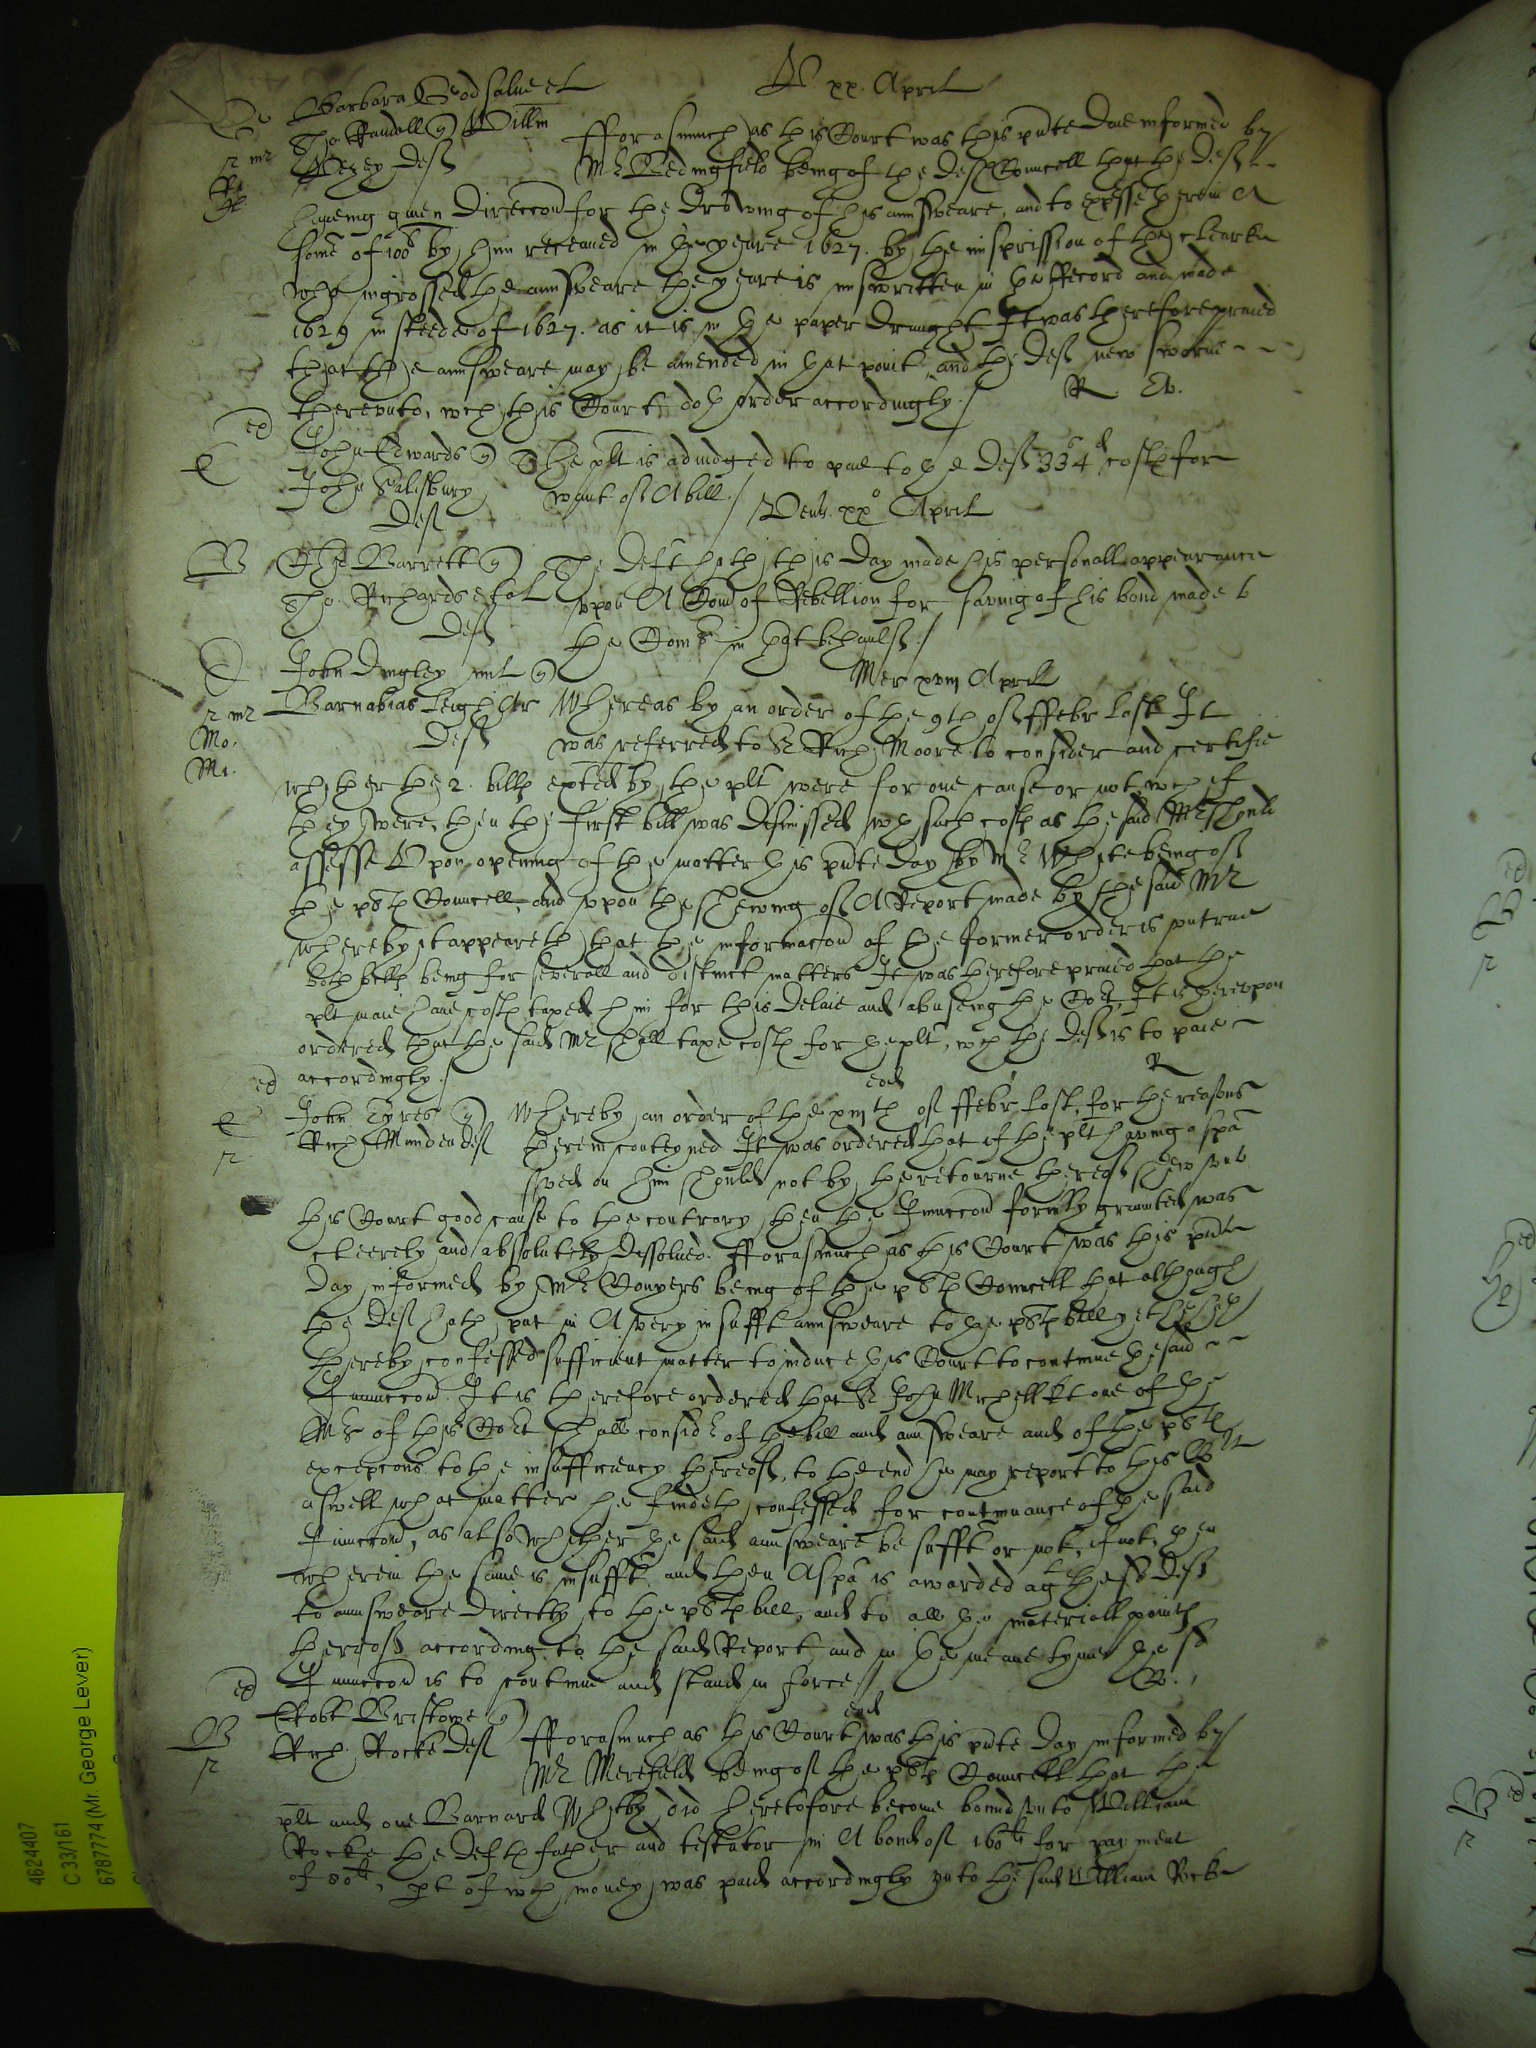 V xx April
Barbara Godsalve et
Tho: Randall q Willm
Vezey Def
fforasmuch as this Court was this pnte daie informed by
Mr Bedingfield being of the def Councell that the def
haveing given direccon for the drawing of his annsweare, and to expresse therein A
some of 100s by him receaued in the yeare 1627. by the misprission of the clearke
who ingrossed the annsweare the yeare is miswritten in the Record and made
1629 in steede of 1627. as it is in the paper draught It was therefore praied
that the annsweare may be amended in that point and the def new sworne
therevnto, wch this Court doth order accordingly./ R
ex
John Edwards q
John Salisbury
Def
The plt is adiudged to paie to the def 33s 4d costs for
want of A bill./
Ven. xxo April
B
Barrett q
Tho: Richards et al
Def
The deft hath this day made his personall appearance
vpon A Com of Rebellion for saving of his bond made to
the Comrs in that behaulf./
Mer xviij April
John Dingley mil q
Barnabias Leigh Ar
Def
r mr
Mo.
Mi.
Whereas by an order of the 9th of ffebr last It
was referred to Sr Rich: Moore to consider and certifie
whether the 2. bills exted by the plt were for one cause or not, wch if
they were, then the first bill was dismissed wth such costs as the said Mr should
assesse Vpon opening of the matter this pnte day by Mr White being of
the plts Councell, and vpon the shewing of A Report made by the said Mr
whereby it appeareth that the informacon of the former order is vntrue
both bills being for severall and distinct matters It was therefore praied that the
plt maie have costs taxed him for this delaie and abuseing the Cort, It is therevpon
ordered that the said Mr shall taxe costs for the plt, wch the def is to paie
accordingly./ R
ex
eod
John Eyres q
Rich: Munden def
Whereby an order of the xiijth of ffebr last, for the reasons
therein conteyned It was ordered that if the plt having a spa
sved on him should not by the retourne thereof shew vnto
this Court good cause to the contrary then the Iniunccon formly graunted was
cleerely and absolutely dissolued. fforasmuch as this Court was this pnte
day informed by Mr Conyers being of the plts Councell that although
the def hath put in A very insufft annsweare to the plts bill yet he hath
thereby confessed sufficient matter to induce this Court to continue the said
Iniunccon It is therefore ordered that Sr John Michell kt one of the
Mrs of this Cort shall considr of the bill and annsweare and of the plts
excepcons to the insufficiency thereof, to the end he may report to this Cort
aswell what matter he findeth confessed for continuance of the said
Iniunccon, as also whether the said annsweare be sufft or not, if not, then
wherein the same is insufft and then A spa is awarded agt the sd def
to annsweare directly to the plts bill, and to all the materiall points
thereof according to the said Report and in the meane tyme the sd
Iniunccon is to continue and stand in force./ R.
ex
eod
Robt Bristowe q
Rich: Rocke def
B
r
fforasmuch as this Court was this pnte day informed by
Mr Merefield being of the plts Councell that the
plt and one Barnard Whitby did heretofore become bound vnto William
Rocke the defts father and testator in A bond of 160li for payment
of 80li, pt of wch money was paid accordingly vnto the said William Rocke
4624407
C 33/161
6787774 (Mr. George Lever)